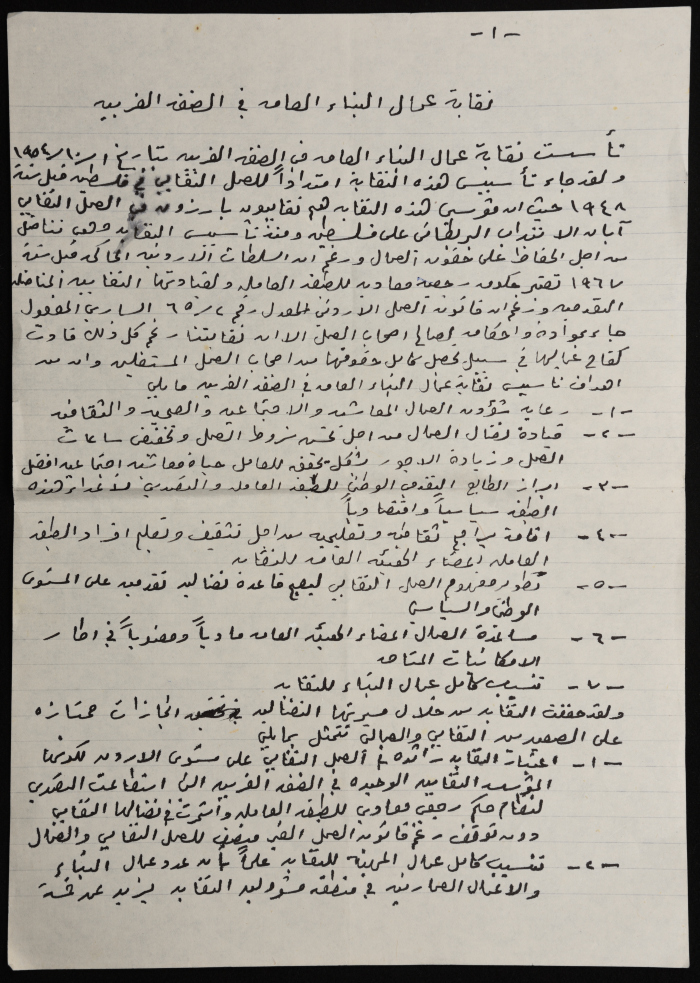 -١-
نقابة عمال البناء العامه في الضفه الغربيه
تأسست نقابة عمال البناء العامه في الضفه الغربيه بتاريخ ١/١٠/١٩٥٤
ولقد جاء تأسيس هذه النقابة امتداداً للعمل النقابي في فلسطين قبل سنة
١٩٤٨ حيث ان مؤسسي هذه النقابه هم نقابيون بارزون في العمل النقابي
آبان الانتداب البريطاني على فلسطين ومنذ تأسيس النقابه وهي تناضل
من اجل الحفاظ على حقوق العمال ورغم ان السلطات الاردنيه الحاكمه قبل سنة
١٩٦٧ تعتبر حكومه رجعيه معاديه للطبقه العامله ولقيادتها النقابيه المناضله
التقدميه ورغم ان قانون العمل الاردني المعدل رقم ٢ / ٦٥ الساري المفعول
جاء بمواده واحكامه لصالح اصحاب العمل الا ان نقابتنا رغم كل ذلك قادت
كفاح عمالها في سبيل تحصيل كامل حقوقها من اصحاب العمل المستغلين وان من
اهداف تاسيس نقابة عمال البناء العامه في الضفه الغربيه مايلي
-١- رعايه شؤون العمال المعاشيه والاجتماعيه والصحيه والثقافيه
-٢- قيادة نضال العمال من اجل تحسين شروط العمل وتخفيض ساعات
العمل وزيادة الاجور بشكل يحقق للعامل حياة معاشيه اجتماعيه افضل
-٣- ابراز الطابع التقدمي الوطني للطبقه العامله والتصدي لأعداء هذه
الطبقه سياسياً واقتصادياً
-٤- اقامة برامج ثقافيه وتعليميه من اجل تثقيف وتعليم افراد الطبقه
العامله اعضاء الهيئه العامه للنقابه
-٥- تطوير مفهوم العمل النقابي ليصبح قاعدة نضاليه تقدميه على المستوى
الوطني والسياسي
-٦- مساعدة العمال اعضاء الهيئه العامه مادياً ومعنوياً في اطار
الامكانيات المتاحه
-٧- تنسيب كامل عمال البناء للنقابه
ولقد حققت النقابه من خلال مسيرتها النضاليه انجازات ممتازه
على الصعيدين النقابي والعمالي تتمثل بمايلي
-١- اعتبار النقابه رائده في العمل النقابي على مستوى الاردن لكونها
المؤسسه النقابيه الوحيده في الضفه الغربيه التي استطاعت التصدي
لنظام حكم رجعي معادي للطبقه العامله واستمرت في نضالها النقابي
دون توقف رغم قانون العمل الغير منصف للعمل النقابي والعمال
-٢- تنسيب كامل عمال المهنة للنقابه علماً بأن عدد عمال البناء
والاعمال المعماريه في منطقه مسؤوليه النقابه يزيد عن خمسة